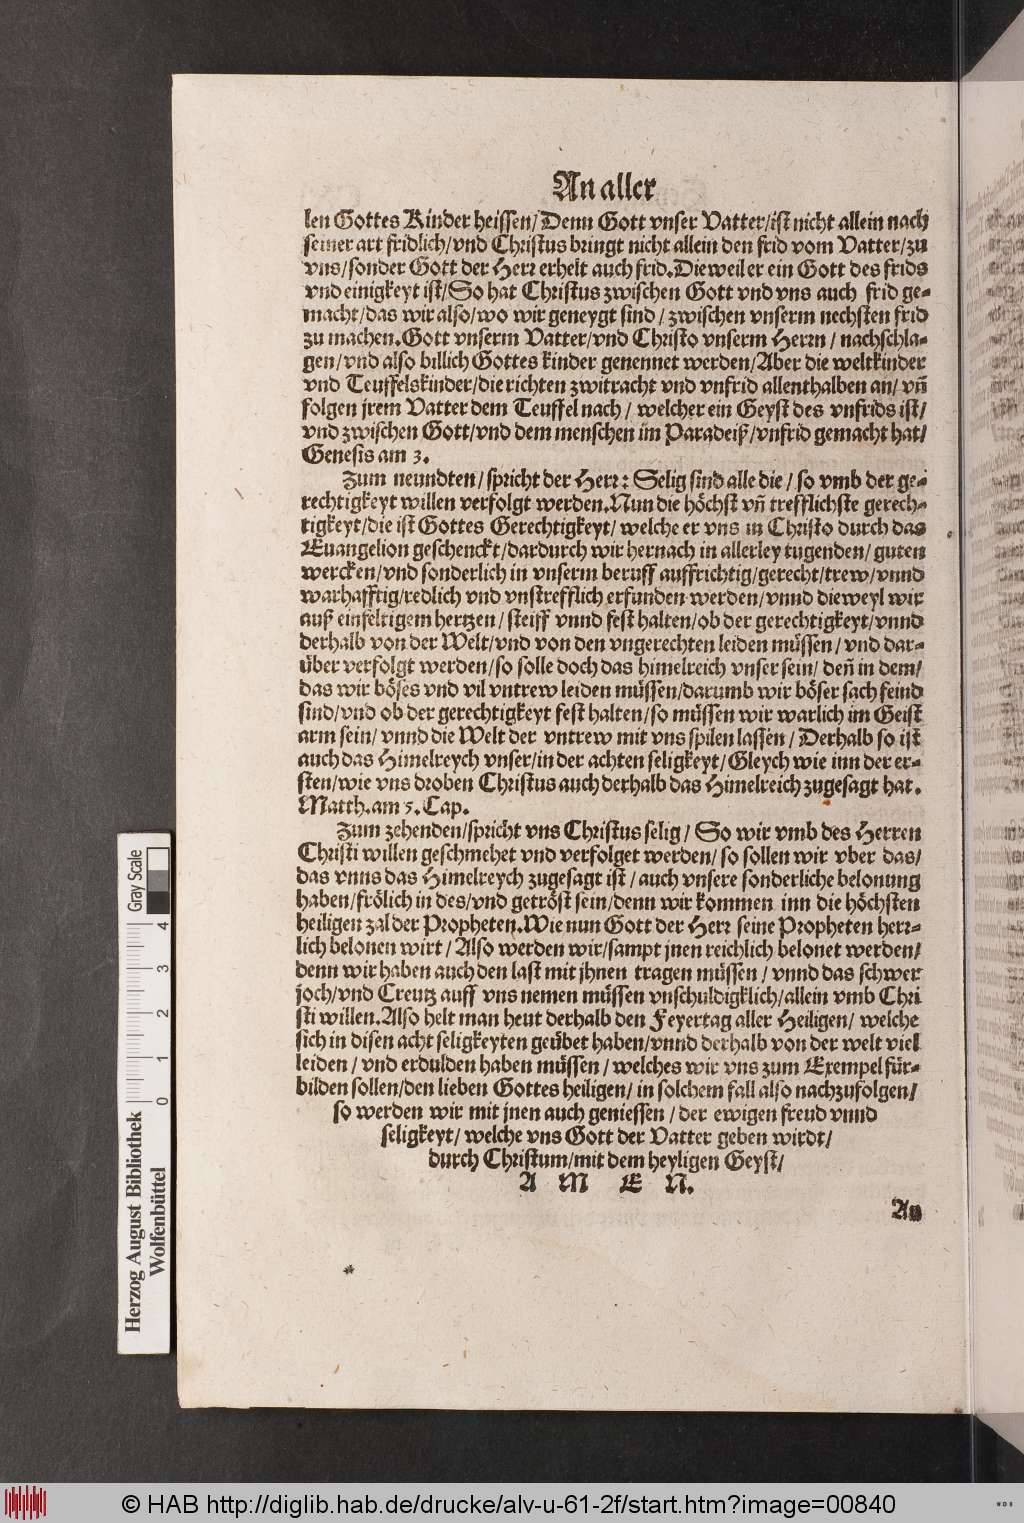 An aller
len Gottes Kinder heissen/ Denn Gott vnser Vatter/ist nicht allein nach
seiner art fridlich/vnd Christus bringt nicht allein den frid vom Vatter/zu
vns/sonder Gott der Herr erhelt auch frid. Dieweil er ein Gott des frids
vnd einigkeyt ist/So hat Christus zwischen Gott vnd vns auch frid ge-
macht/das wir also/wo wir geneygt sind/ zwischen vnserm nechsten frid
zu machen. Gott vnserm Vatter/vnd Christo vnserm Herrn/ nachschla-
gen/vnd also billich Gottes kinder genennet werden/Aber die weltkinder
vnd Teuffelskinder/die richten zwitracht vnd vnfrid allenthalben an/ vñ
folgen jrem Vatter dem Teuffel nach/ welcher ein Geyst des vnfrids ist/
vnd zwischen Gott/vnd dem menschen im Paradeiß/vnfrid gemacht hat/
Genesis am 3.
Zum neundten/ spricht der Herr: Selig sind alle die/ so vmb der ge-
rechtigkeyt willen verfolgt werden. Nun die höchst vñ trefflichste gerech-
tigkeyt/die ist Gottes Gerechtigkeyt/ welche er vns in Christo durch das
Euangelion geschenckt/dardurch wir hernach in allerley tugenden/ guten
wercken/vnd sonderlich in vnserm beruff auffrichtig/gerecht/trew/vnnd
warhafftig/redlich vnd vnstrefflich erfunden werden/vnnd dieweyl wir
auß einfeltigem hertzen/ steiff vnnd fest halten/ob der gerechtigkeyt/vnnd
derhalb von der Welt/vnd von den vngerechten leiden müssen/ vnd dar-
über verfolgt werden/so solle doch das himelreich vnser sein/ deñ in dem/
das wir böses vnd vil vntrew leiden müssen/darumb wir böser sach feind
sind/vnd ob der gerechtigkeyt fest halten/so müssen wir warlich im Geist
arm sein/ vnnd die Welt der vntrew mit vns spilen lassen/ Derhalb so ist
auch das Himelreych vnser/in der achten seligkeyt/Gleych wie inn der er-
sten/wie vns droben Christus auch derhalb das Himelreich zugesagt hat.
Matth. am 5. Cap.
Zum zehenden/spricht vns Christus selig/ So wir vmb des Herren
Christi willen geschmehet vnd verfolget werden/ so sollen wir vber das/
das vnns das Himelreych zugesagt ist/ auch vnsere sonderliche belonung
haben/frölich in des/vnd getröst sein/denn wir kommen inn die höchsten
heiligen zal der Propheten. Wie nun Gott der Herr seine Propheten herr-
lich belonen wirt/ Also werden wir/sampt jnen reichlich belonet werden/
denn wir haben auch den last mit jhnen tragen müssen/ vnnd das schwer
joch/vnd Creutz auff vns nemen müssen vnschuldigklich/allein vmb Chri
sti willen. Also helt man heut derhalb den Feyertag aller Heiligen/ welche
sich in disen acht seligkeyten geübet haben/vnnd derhalb von der welt viel
leiden/ vnd erdulden haben müssen/ welches wir vns zum Exempel für-
bilden sollen/den lieben Gottes heiligen/ in solchem fall also nachzufolgen/
so werden wir mit jnen auch geniessen/ der ewigen freud vnnd
seligkeyt/ welche vns Gott der Vatter geben wirdt/
durch Christum/mit dem heyligen Geyst/
A M E N.
An
Herzog August Bibliothek
Wolfenbüttel
0 1 2 3 4
Gray Scale
© HAB http://diglib.hab.de/drucke/alv-u-61-2f/start.htm?image=00840